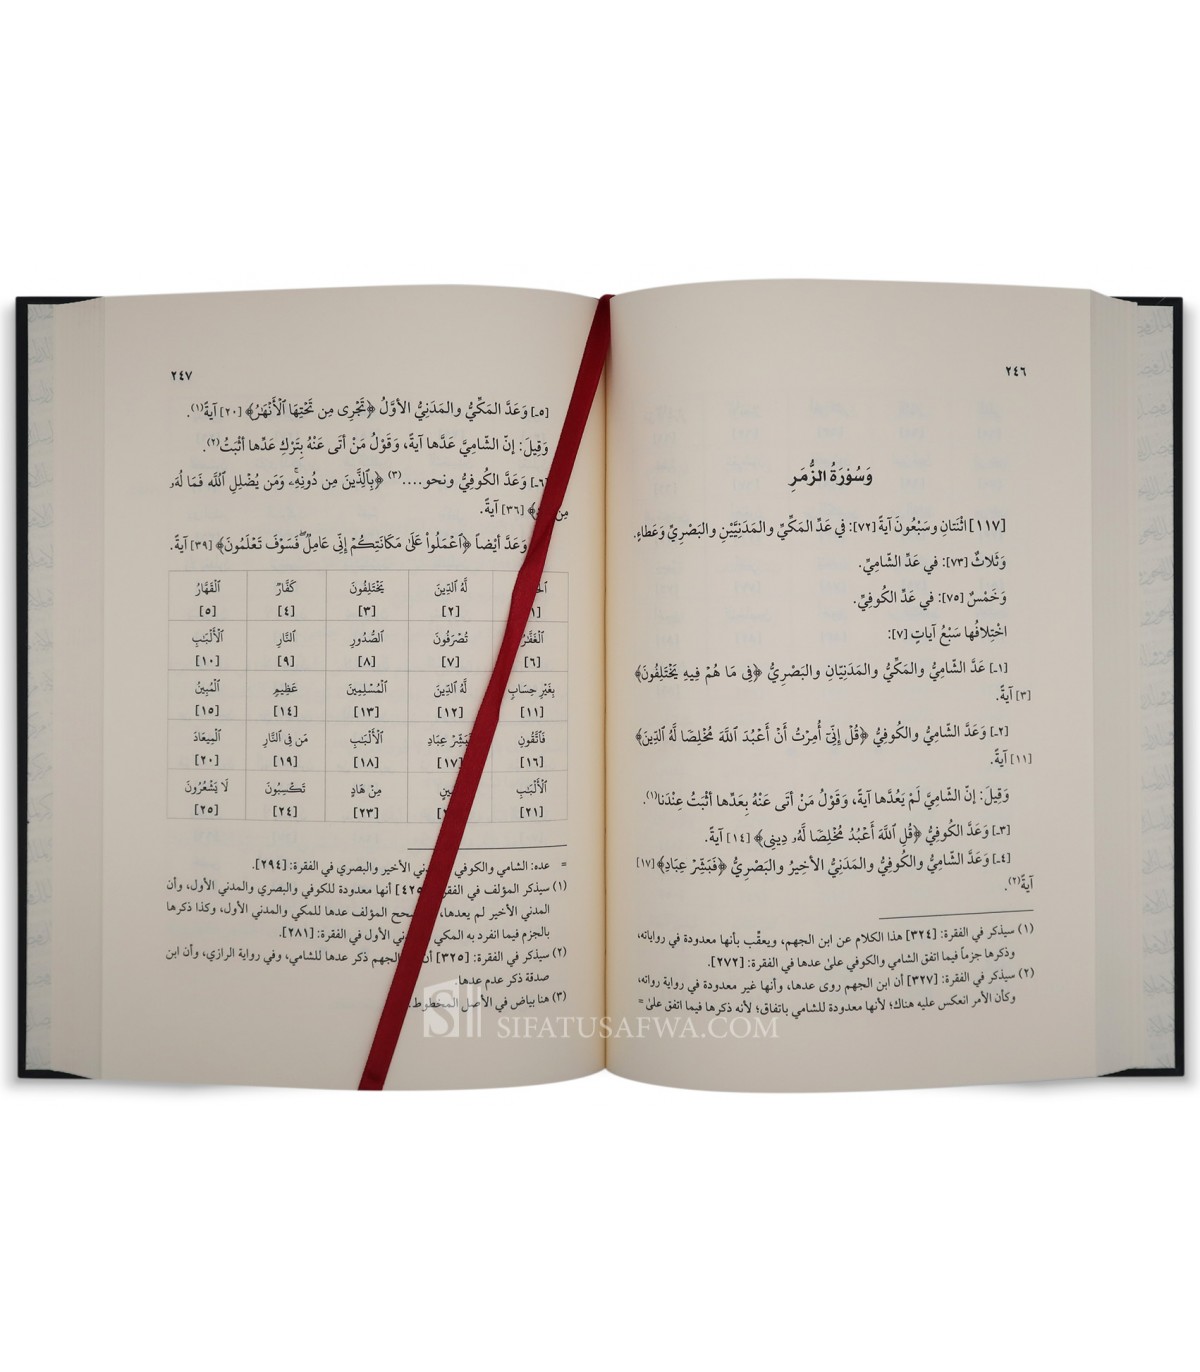 ٢٤٦
وَسُوْرَةُ الزُّمَرِ
[١١٧] اثْنَتانِ وسَبْعُونَ آيَةً [٧٢]: في عَدِّ المَكِّيِّ والمَدَنِيَّيْنِ والبَصْرِيِّ وَعَطاءٍ.
وَثَلاثٌ [٧٣]: في عَدِّ الشّامِيِّ.
وَخَمْسٌ [٧٥]: في عَدِّ الكُوفِيِّ.
اخْتِلافُها سَبْعُ آياتٍ [٧]:
[١ـ] عَدَّ الشّامِيُّ والمَكِّيُّ والمَدَنِيّانِ والبَصْرِيُّ ﴿فِى مَا هُمْ فِيهِ يَخْتَلِفُونَ﴾
[٣] آيَةً.
[٢ـ] وَعَدَّ الشّامِيُّ والكُوفِيُّ ﴿قُلْ إِنِّىٓ أُمِرْتُ أَنْ أَعْبُدَ ٱللَّهَ مُخْلِصًا لَّهُ ٱلدِّينَ﴾
[١١] آيَةً.
وَقِيلَ: إنّ الشّامِيَّ لَمْ يَعُدَّها آيَةً، وَقَوْلُ مَنْ أتَى عَنْهُ بِعَدِّها أثْبَتُ عِنْدَنا(١).
[٣ـ] وَعَدَّ الكُوفِيُّ ﴿قُلِ ٱللَّهَ أَعْبُدُ مُخْلِصًا لَّهُۥ دِينِى﴾ [١٤] آيَةً.
[٤ـ] وَعَدَّ الشّامِيُّ والكُوفِيُّ والمَدَنِيُّ الأخِيرُ والبَصْرِيُّ ﴿فَبَشِّرْ عِبَادِ﴾ [١٧]
آيَةً(٢).
(١) سيذكر في الفقرة: [٣٢٤] هذا الكلام عن ابن الجهم، ويعقّب بأنها معدودة في رواياته،
وذكرها جزماً فيما اتفق الشامي والكوفي على عدها في الفقرة: [٢٧٢].
(٢) سيذكر في الفقرة: [٣٢٧] أن ابن الجهم روى عدها، وأنها غير معدودة في رواية رواته،
وكأن الأمر انعكس عليه هناك؛ لأنها معدودة للشامي باتفاق؛ لأنه ذكرها فيما اتفق على =
٢٤٧
[٥ـ] وَعَدَّ المَكِّيُّ والمَدَنِيُّ الأوَّلُ ﴿تَجْرِى مِن تَحْتِهَا ٱلْأَنْهَٰرُ﴾ [٢٠] آيَةً(١).
وَقِيلَ: إنّ الشّامِيَّ عَدَّها آيَةً، وَقَوْلُ مَنْ أتَى عَنْهُ بِتَرْكِ عَدِّها أثْبَتُ(٢).
[٦ـ] وَعَدَّ الكُوفِيُّ ونحو....(٣) ﴿بِٱلَّذِينَ مِن دُونِهِۦۚ وَمَن يُضْلِلِ ٱللَّهُ فَمَا لَهُۥ
مِنْ ﴾ [٣٦] آيَةً.
وَعَدَّ أيْضاً ﴿ٱعْمَلُوا۟ عَلَىٰ مَكَانَتِكُمْ إِنِّى عَامِلٌ ۖ فَسَوْفَ تَعْلَمُونَ﴾ [٣٩] آيَةً.
لَّهُ ٱلدِّينَ يَخْتَلِفُونَ كَفَّارٌ ٱلْقَهَّارُ
[٢] [٣] [٤] [٥]
ٱلْغَفَّٰرُ تُصْرَفُونَ ٱلصُّدُورِ ٱلنَّارِ ٱلْأَلْبَٰبِ
[٦] [٧] [٨] [٩] [١٠]
بِغَيْرِ حِسَابٍ لَّهُ ٱلدِّينَ ٱلْمُسْلِمِينَ عَظِيمٍ ٱلْمُبِينُ
[١١] [١٢] [١٣] [١٤] [١٥]
فَٱتَّقُونِ فَبَشِّرْ عِبَادِ ٱلْأَلْبَٰبِ مَن فِى ٱلنَّارِ ٱلْمِيعَادَ
[١٦] [١٧] [١٨] [١٩] [٢٠]
ٱلْأَلْبَٰبِ مِنْ هَادٍ تَكْسِبُونَ لَا يَشْعُرُونَ
[٢١] [٢٣] [٢٤] [٢٥]
= عده: الشامي والكوفي والمدني الأخير والبصري في الفقرة: [٢٩٤].
(١) سيذكر المؤلف في الفقرة [٤٢٥] أنها معدودة للكوفي والبصري والمدني الأول، وأن
المدني الأخير لم يعدها، المؤلف عدها للمكي والمدني الأول، وكذا ذكرها
بالجزم فيما انفرد به المكي والمدني الأول في الفقرة: [٢٨١].
(٢) سيذكر في الفقرة: [٣٢٥] أن الجهم ذكر عدها للشامي، وفي رواية الرازي، وأن ابن
صدقة ذكر عدم عدها.
(٣) هنا بياض في الأصل المخطوط.
SIFATUSAFWA.COM